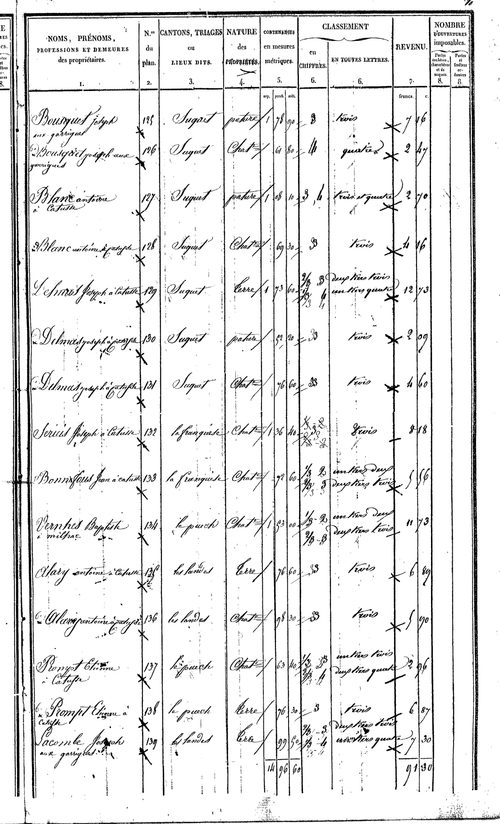 NOMS, PRÉNOMS,
PROFESSIONS ET DEMEURES
des propriétaires.
1.
N.os
du
plan.
2.
CANTONS, TRIAGES
ou
LIEUX DITS.
3.
NATURE
des
PROPRIÉTÉS.
4.
CONTENANCES
en mesures
métriques.
5.
CLASSEMENT
en
CHIFFRES.
EN TOUTES LETTRES.
6.
6.
REVENU.
7.
NOMBRE
D'OUVERTURES
imposables.
8.
8.
francs. c.
Bousquet joseph
aux garrigues
125 Suquet pature 1 78 90 3 trois 7 16
Bousquet joseph aux
garrigues
126 Suquet Chat 61 80 4 quatre 2 47
Blanc antoine
à Calusse
127 Suquet pature 1 08 10 3, 4 trois et quatre 2 70
Blanc antoine
128 Suquet Chat 69 30 3 trois 4 16
Delmas Joseph
129 Suquet terre 1 73 60 2/3 3 deux tiers trois
1/3 4 un tiers quatre 12 73
Delmas joseph
130 Suquet pature 52 20 3 trois 2 09
Delmas joseph
131 Suquet Chat 76 60 3 trois 4 60
Joseph
132 la franquete Chat 1 36 40 trois 8 18
Bonnefous Jean
133 la franquete Chat 72 60 1/3 2 un tiers deux
2/3 3 deux tiers trois 5 56
Vernhes Baptiste
134 le puech Chat 1 53 00 1/3 2 un tiers deux
2/3 3 deux tiers trois 11 73
Alary antoine
135 les landes terre 76 60 3 trois 6 89
Alary antoine
136 les landes Chat 98 30 3 trois 5 90
Rompt Etienne
137 le puech Chat 63 40 1/3 3 un tiers trois
2/3 4 deux tiers quatre 2 96
Rompt Etienne à
138 le puech terre 76 30 3 trois 6 87
Lacombe Joseph
aux garrigues
139 les landes terre 99 50 2/3 3 deux tiers trois
1/3 4 un tiers quatre 7 30
14 96 60
91 30